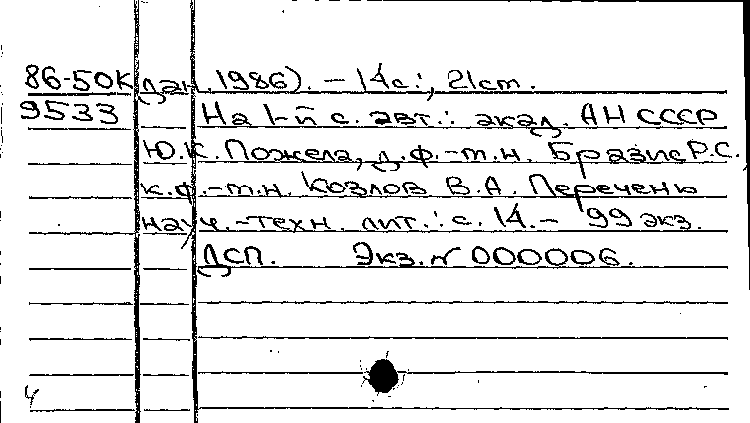 86-50К дан. 1986). – 14с.; 21см.
9533 На 1-й с. авт.: акад. АН СССР
Ю.К. Пожела, д.ф.-т.н. Бразис Р.С.,
к.ф.-т.н. Козлов В.А. Перечень
науч.-техн. лит.: с. 14. – 99 экз.
ДСП. Экз. № 000006.
4